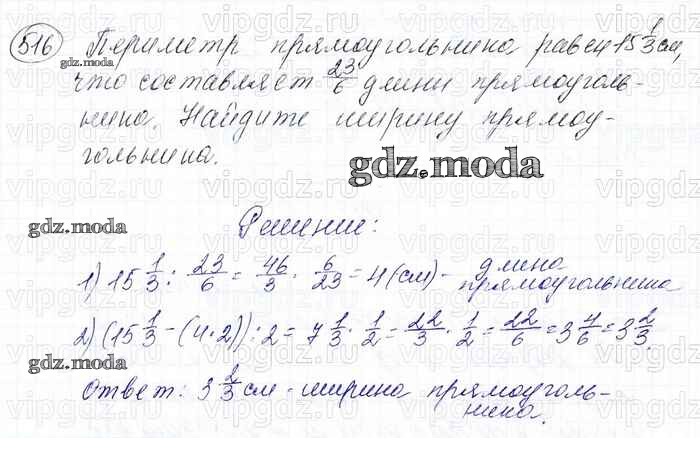 516 Периметр прямоугольника равен 15 1/3 см,
что составляет 23/6 длины прямоуголь-
ника. Найдите ширину прямоу-
гольника.
gdz.moda
gdz.moda
Решение:
gdz.moda
1) 15 1/3 : 23/6 = 46/3 · 6/23 = 4 (см) - длина
прямоугольника
2) (15 1/3 - (4·2)) : 2 = 7 1/3 · 1/2 = 22/3 · 1/2 = 22/6 = 3 4/6 = 3 2/3.
gdz.moda
Ответ: 3 2/3 см - ширина прямоуголь-
ника.
vipgdz.ru